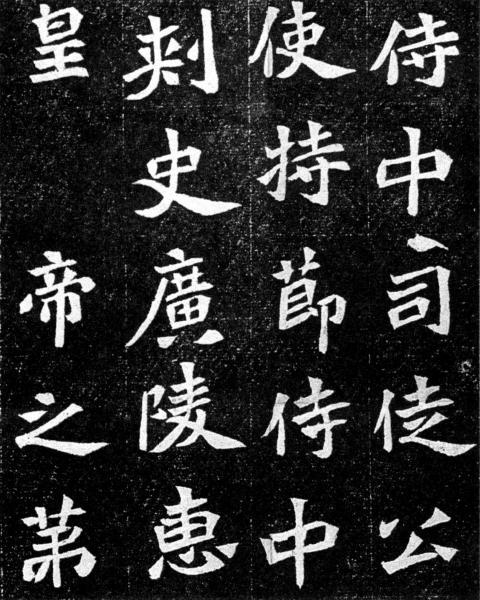 侍中司徒公
使持節侍中
刾史廣陵惠
皇帝之苐